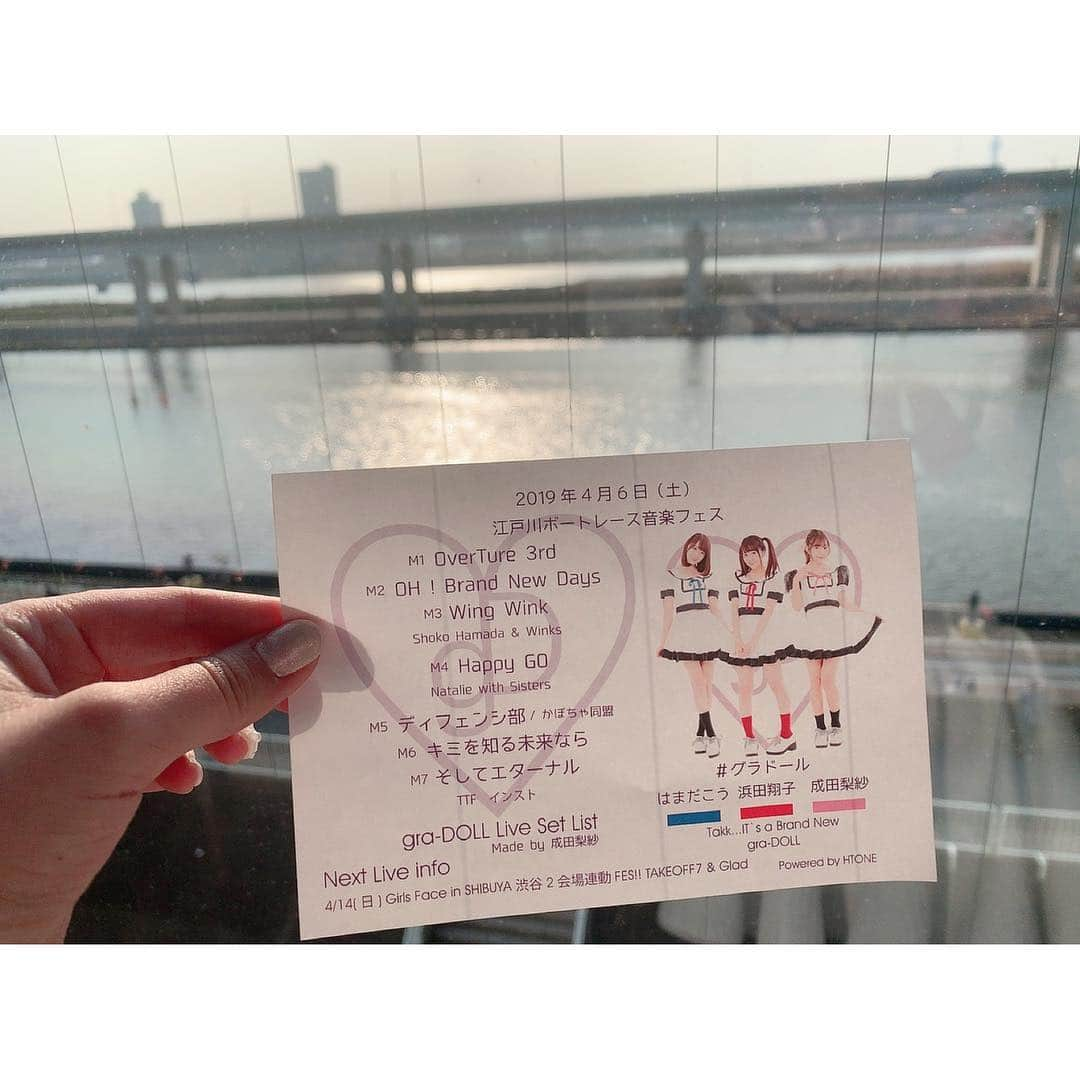 2019年4月6日(土)
江戸川ボートレース音楽フェス
M1 OverTure 3rd
M2 OH ! Brand New Days
M3 Wing Wink
Shoko Hamada & Winks
M4 Happy GO
Natalie with Sisters
M5 ディフェンシ部 / かぼちゃ同盟
M6 キミを知る未来なら
M7 そしてエターナル
TTF インスト
gra-DOLL Live Set List
Made by 成田梨紗
#グラドール
はまだこう 浜田翔子 成田梨紗
Takk...IT`s a Brand New
gra-DOLL
Powered by HTONE
Next Live info
4/14(日) Girls Face in SHIBUYA 渋谷2会場連動FES!! TAKEOFF7 & Glad